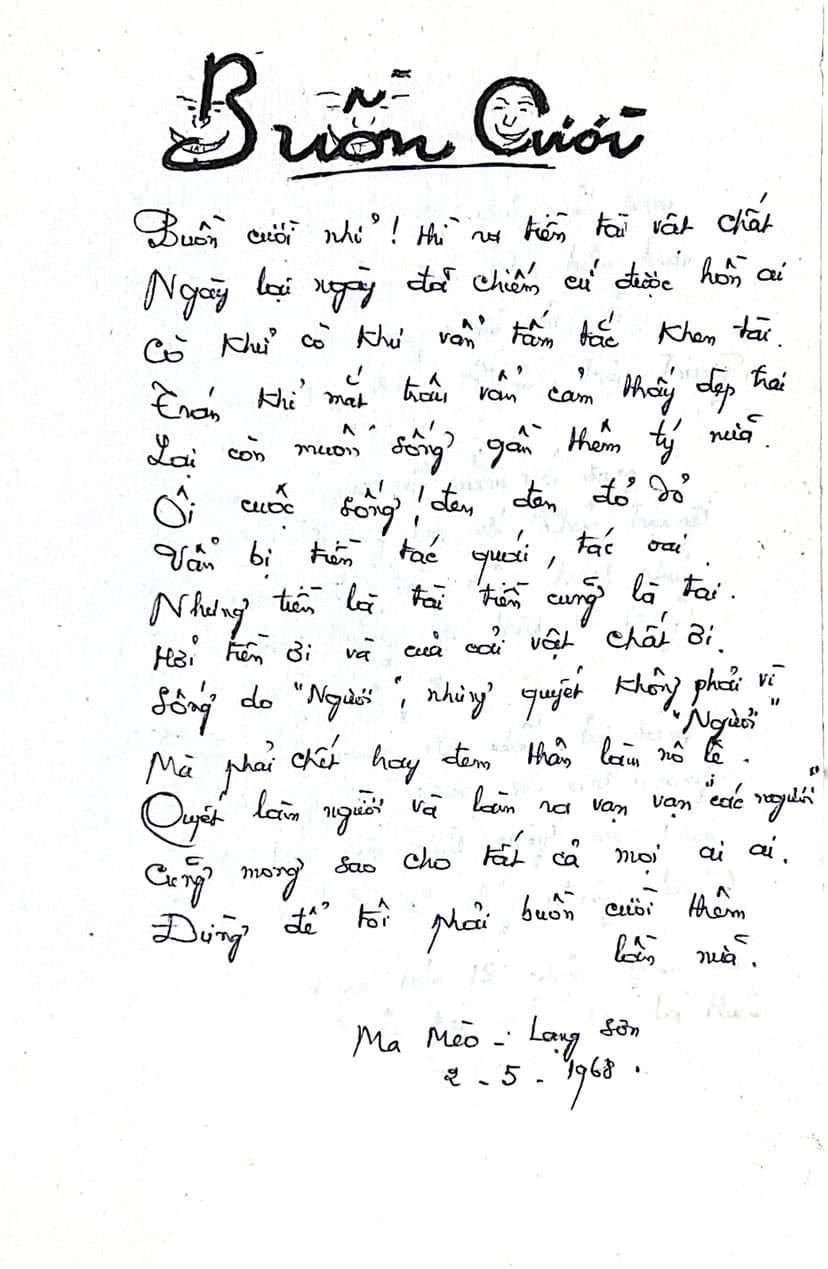 Buồn Cười
Buồn cười nhỉ! thì ra tiền tài vật chất
Ngày lại ngày đã chiếm cứ được hồn ai
Cò khử cò khư vẫn tấm tắc khen tài.
Trán khỉ mắt trâu vẫn cảm thấy đẹp trai
Lại còn muốn sống gần thêm tý nữa.
Ôi cuộc sống! đen đen đỏ đỏ
Vẫn bị tiền tác quái, tác oai.
Nhưng tiền là tài tiền cũng là tai.
Hỡi tiền ơi và của cải vật chất ơi.
Sống do "Người", nhưng quyết không phải vì
"Người"
Mà phải chết hay đem thân làm nô lệ.
Quyết làm người và làm ra vạn vạn "các người"
Cũng mong sao cho tất cả mọi ai ai.
Đừng để tôi phải buồn cười thêm
lần nữa.
Ma Mèo - Lạng Sơn
2 - 5 - 1968.